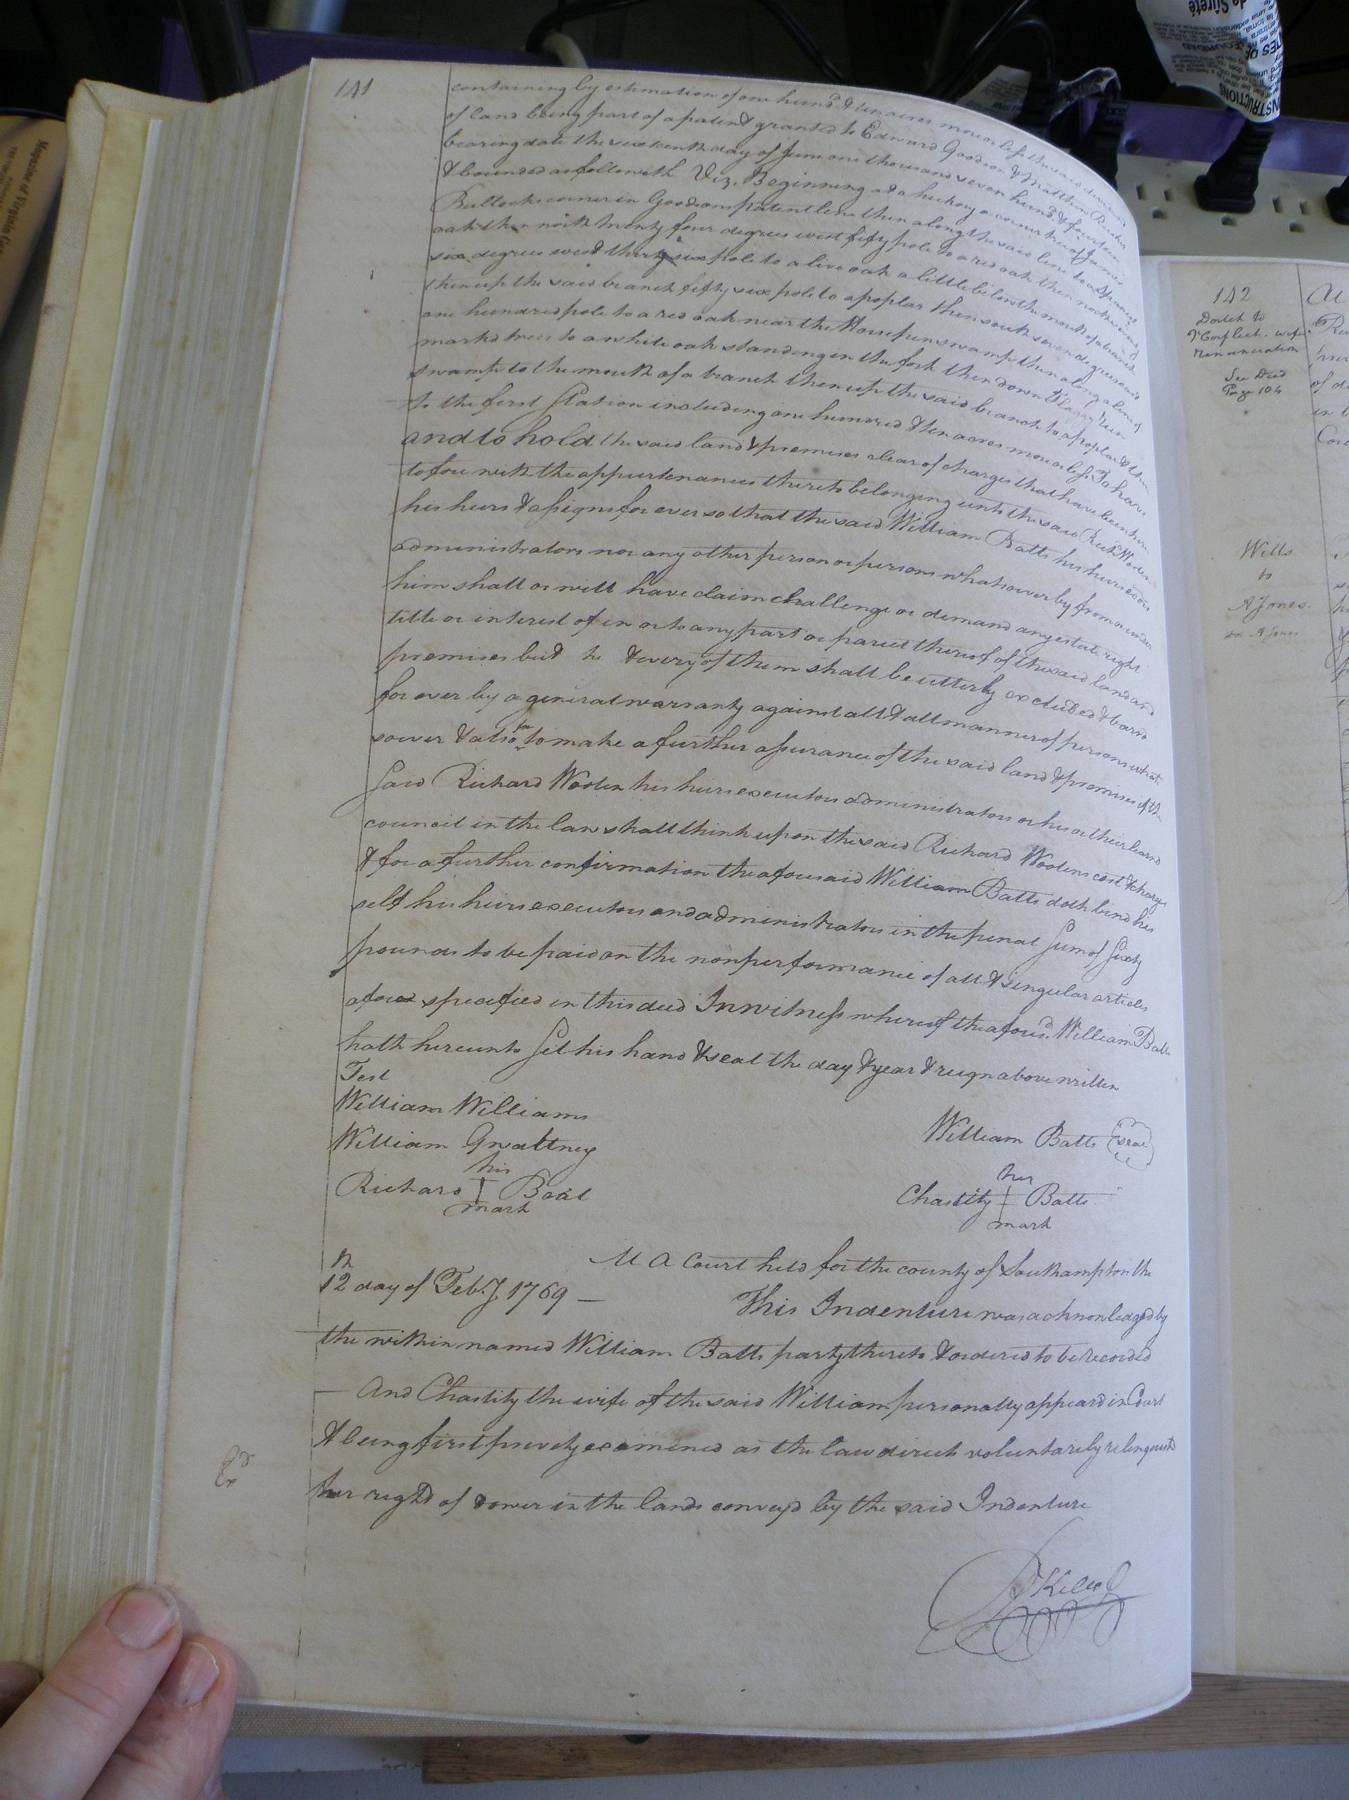 141
containing by estimation of one hund.d & ten acres more or less the said dividend
of land being part of a patent granted to Edward Goodson & Matthew Rushin
bearing date the sixteenth day of June one thousand seven hund.d & fourteen
& bounded as followeth Viz. Beginning at a hickory a corner tree of James
Bullocks corner in Goodsons patent line then along the said line to a Spanish
oak then north twenty four degrees west fifty pole to a red oak then north
six degrees west thirty six pole to a live oak a little below the mouth of a branch
then up the said branch fifty six pole to a poplar then south seven degrees east
one hundred pole to a red oak near the Horsepen swamp then along a line of
markd trees to a white oak standing in the fork then down Flaggy Run
swamp to the mouth of a branch then up the said branch to a poplar & thence
to the first Station including one hundred & ten acres more or less To have
and to hold the said land & premises clear of charges that have been here
tofore with the appurtenances thereto belonging unto the said Rich.d Wooten
his heirs & assigns for ever so that the said William Batts his heirs exors
administrators nor any other person or persons whatsoever by from or under
him shall or will have claim challenge or demand any estate right
title or interest of in or to any part or parcel thereof of the said land and
premises but he & every of them shall be utterly excluded & bard
for ever by a general warranty against all & all manner of persons what
soever & also for to make a further assurance of the said land & premises if the
said Richard Wooten his heirs executors administrators or his or their learnd
council in the law shall think upon the said Richard Wootens cost & charge
& for a further confirmation the aforesaid William Batts doth bind him
self his heirs executors and administrators in the penal Sum of Sixty
pounds to be paid on the nonperformance of all & singular articles
afore specified in this deed In witness whereof the afores.d William Batts
hath hereunto Set his hand & seal the day & year & reign above written
Test
William Williams
William Gwaltney
his
Richard Beal
mark
William Batts seal
her
Chastity Batts
mark
At A Court held for the county of Southampton the
12 day of Feb.y 1769 —
This Indenture was acknowledged by
the within named William Batts party thereto & ordered to be recorded
— And Chastity the wife of the said William personally appeard in Court
& being first privily examined as the law directs voluntarily relinquisht
her right of dower in the lands conveyd by the said Indenture
Ex.d
142
See Deed
Page 104
Wills
to
A Jones.
Magazine of Virginia
INSTRUCTIONS
de Sûreté